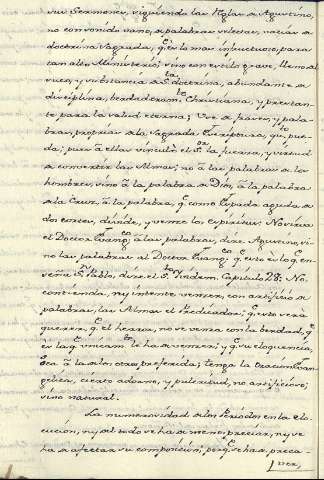 sus Sermones, siguiendo las Reglas de Agustino,
no con sonido vano, de palabras selectas, vacias de
doctrina Sagrada, q.e es lo mas infructuoso, para
tan alto Ministerio; sino con estilo grave, lleno de
suco, y substancia de S.ta doctrina, abundante de
disciplina, verdaderam.te Christiana, y prestan-
te para la salud eterna; Use de frases, y pala-
bras, proprias de la Sagrada Escriptura, q.to pue-
da; pues â ellas vinculò el S.or la fuerza, y virtud
de convertir las Almas; no â las palabras de los
hombres, sino â la palabra de Dios, â la palabra
de la Cruz, â la palabra, q.e como Espada aguda de
dos cortes, divide, y vence los espiritus: No sirva
el Doctor Evang.co â las palabras, dice Agustino, si-
no las palabras al Doctor Evang.co q.e esto es lo q.e en-
seña S. Pablo, dice el S.to Capitulo 28: No
contienda, ny intente vencer, con artificio de
palabras, las Almas el Predicador; q.e esto serà
querer, q.e el herror, no se venza con la verdad,
te ha de vencer; y q.e su eloquencia,
sea â la de los otros preferida; tenga la Oracion Evan-
gelica, cierto adorno, y pulcritud, no artificioso;
sino natural.
La numerosidad de los Periodos en la elo-
cucion, ny del todo se ha de menospreciar, ny se
ha de afectar su composicion, porq.e se han preca-
ver,